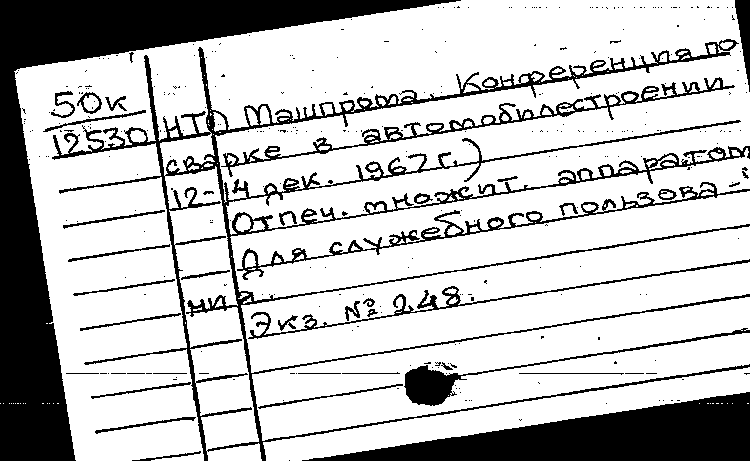 50к
12530 НТО Машпрома. Конференция по
сварке в автомобилестроении
12-14 дек. 1967 г.)
Отпеч. множит. аппаратом
Для служебного пользова-
ния.
Экз. № 248.